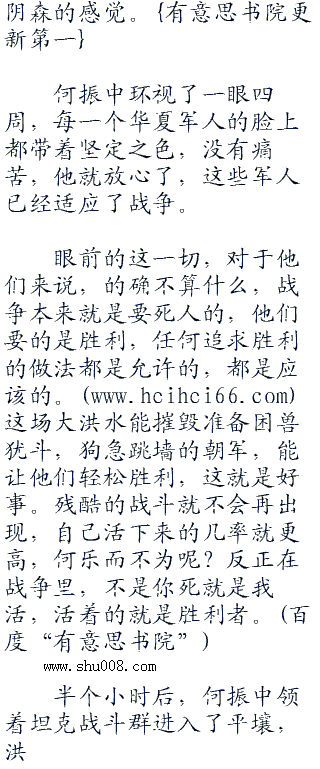 阴森的感觉。{有意思书院更
新第一}
何振中环视了一眼四
周，每一个华夏军人的脸上
都带着坚定之色，没有痛
苦，他就放心了，这些军人
已经适应了战争。
眼前的这一切，对于他
们来说，的确不算什么，战
争本来就是要死人的，他们
要的是胜利，任何追求胜利
的做法都是允许的，都是应
该的。(www.hcihci66.com)
这场大洪水能摧毁准备困兽
犹斗，狗急跳墙的朝军，能
让他们轻松胜利，这就是好
事。残酷的战斗就不会再出
现，自己活下来的几率就更
高，何乐而不为呢？反正在
战争里，不是你死就是我
活，活着的就是胜利者。(百
度“有意思书院”)
www.shu008.com
半个小时后，何振中领
着坦克战斗群进入了平壤，
洪